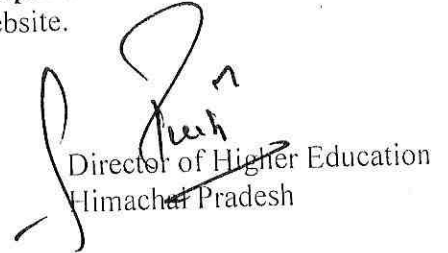 ebsite.
Director of Higher Education
Himachal Pradesh